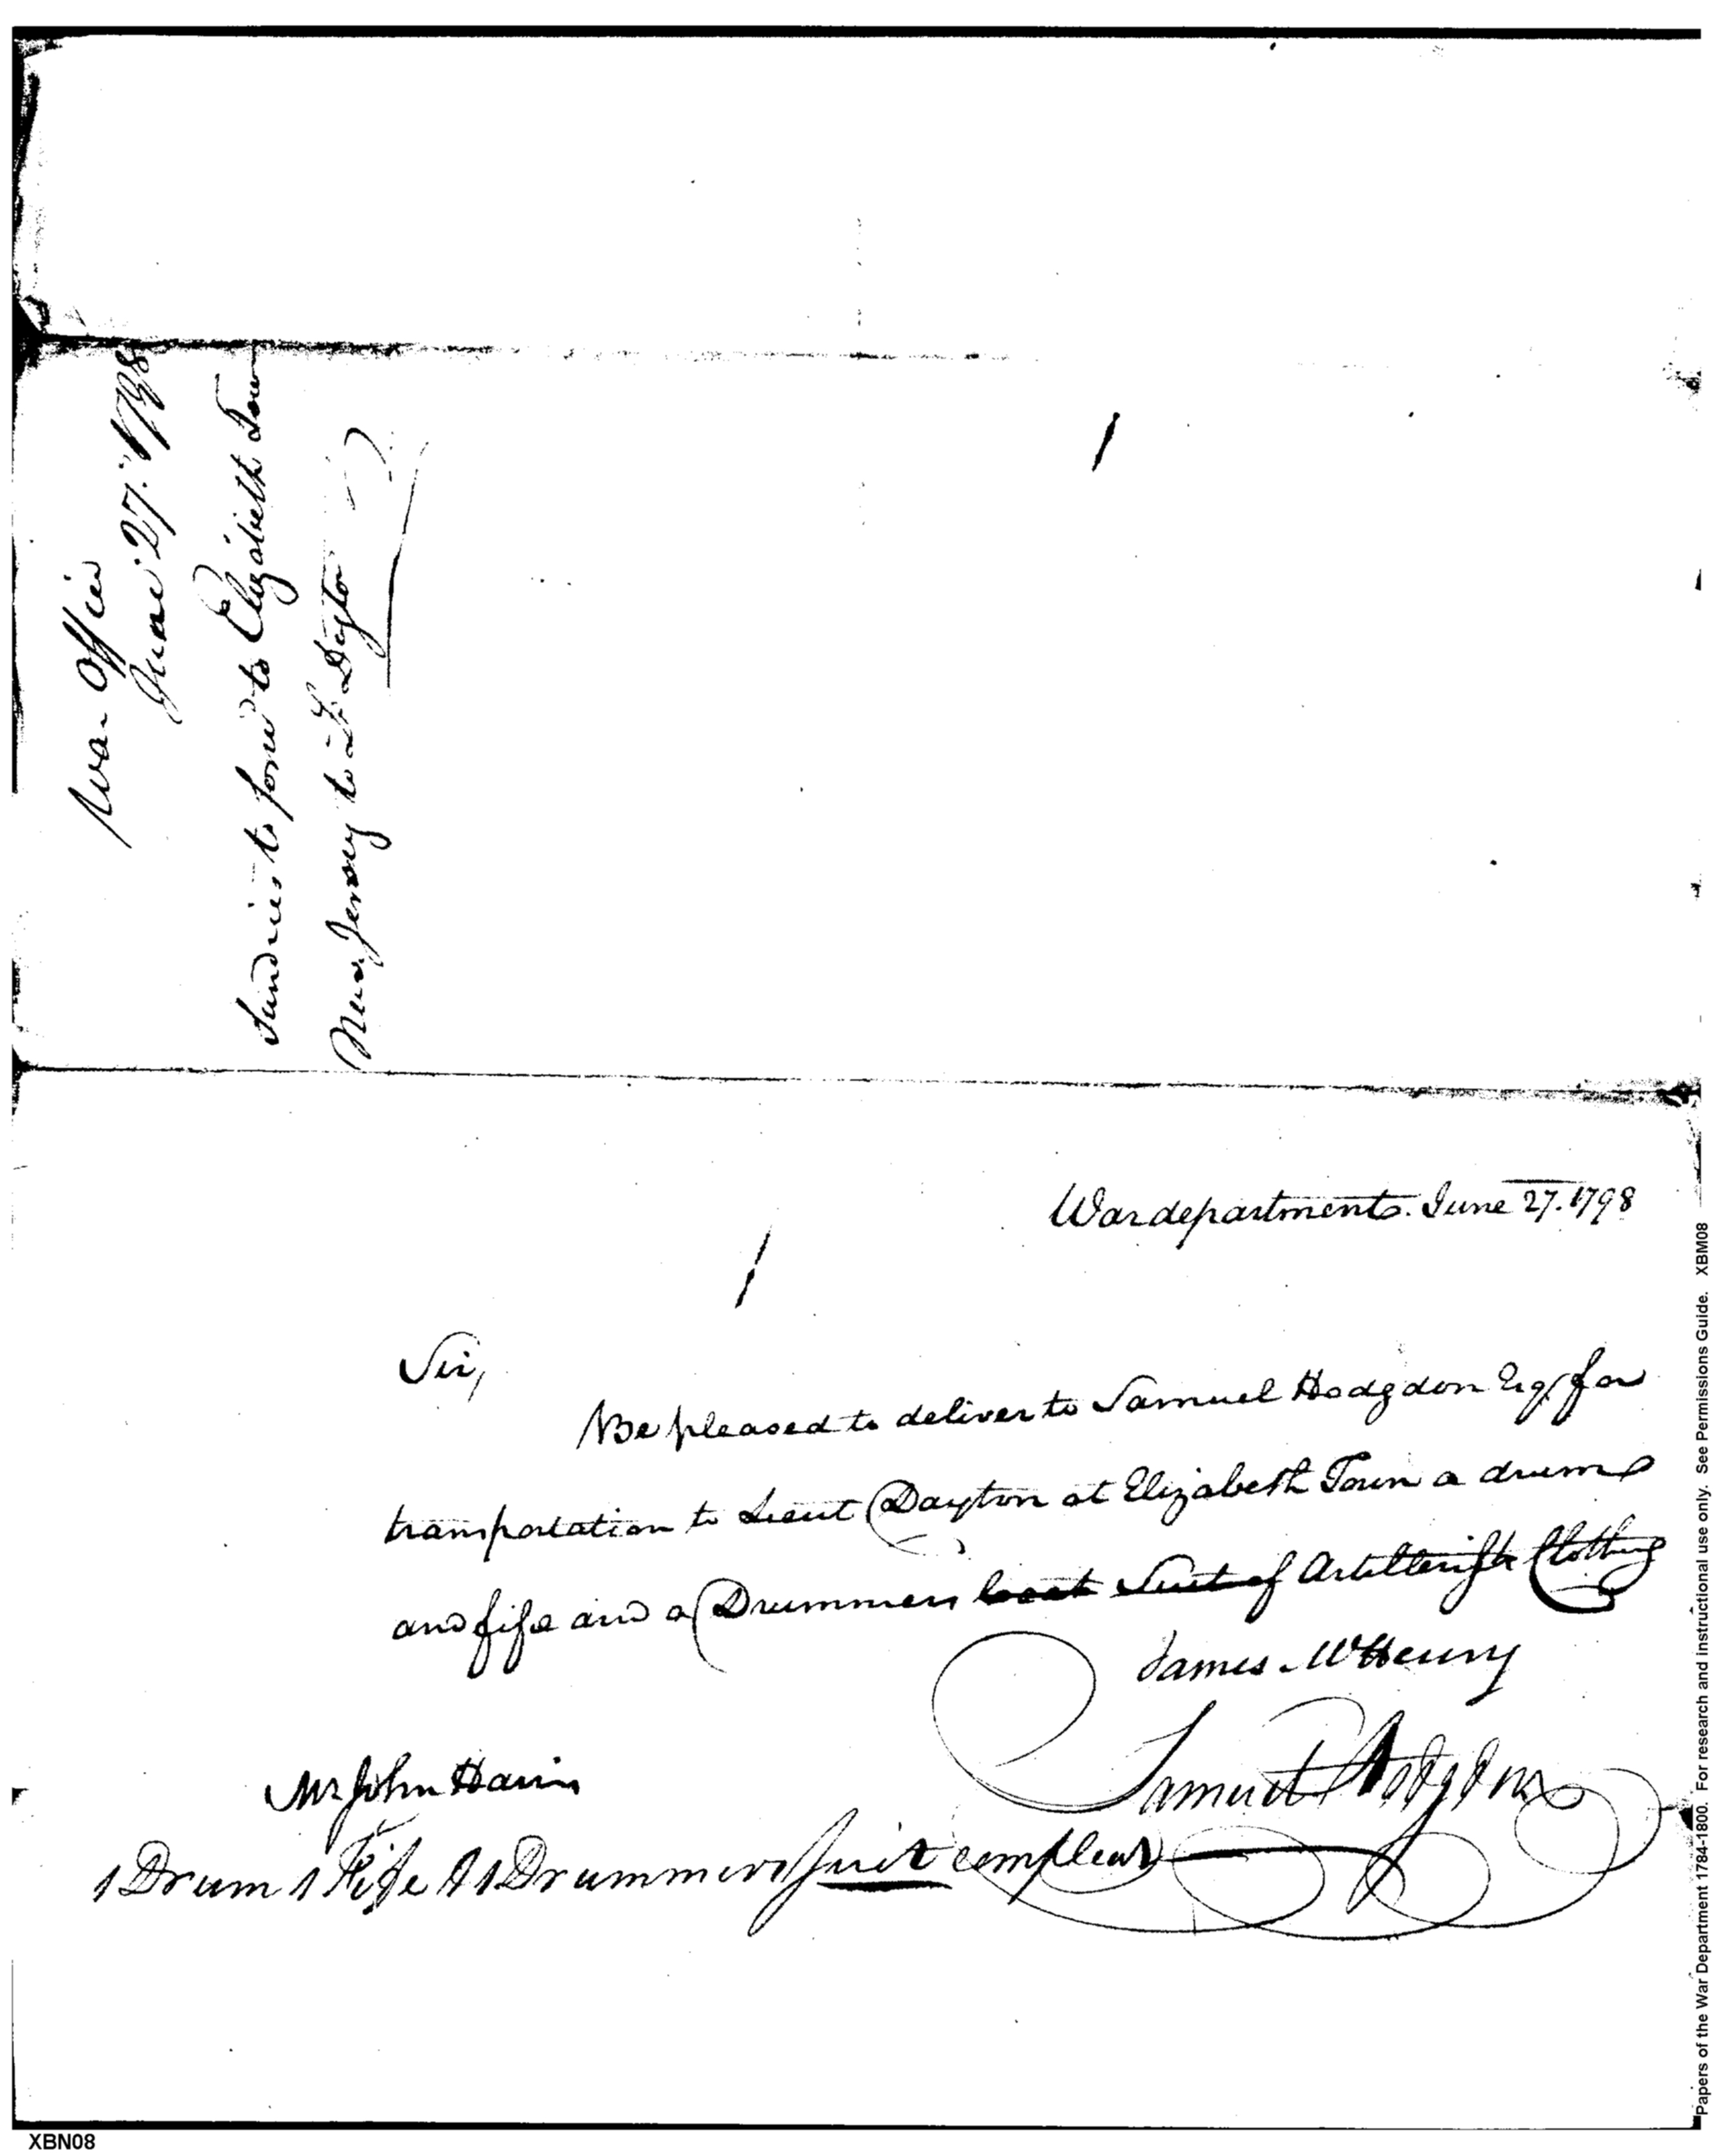 War Office
June 27. 1798
Sundries to forw.d to Elizabeth Town
New Jersey to Lt Dayton
War department. June 27. 1798
Sir,
Be pleased to deliver to Samuel Hodgdon Esq. for
transportation to Lieut Dayton at Elizabeth Town a drum
and fife and a Drummers coat Suit of Artillerists Clothing
James McHenry
Samuel Hodgdon
Mr John Harris
1 Drum 1 Fife & 1 Drummers Suit compleat
Papers of the War Department 1784-1800. For research and instructional use only. See Permissions Guide. XBM08
XBN08